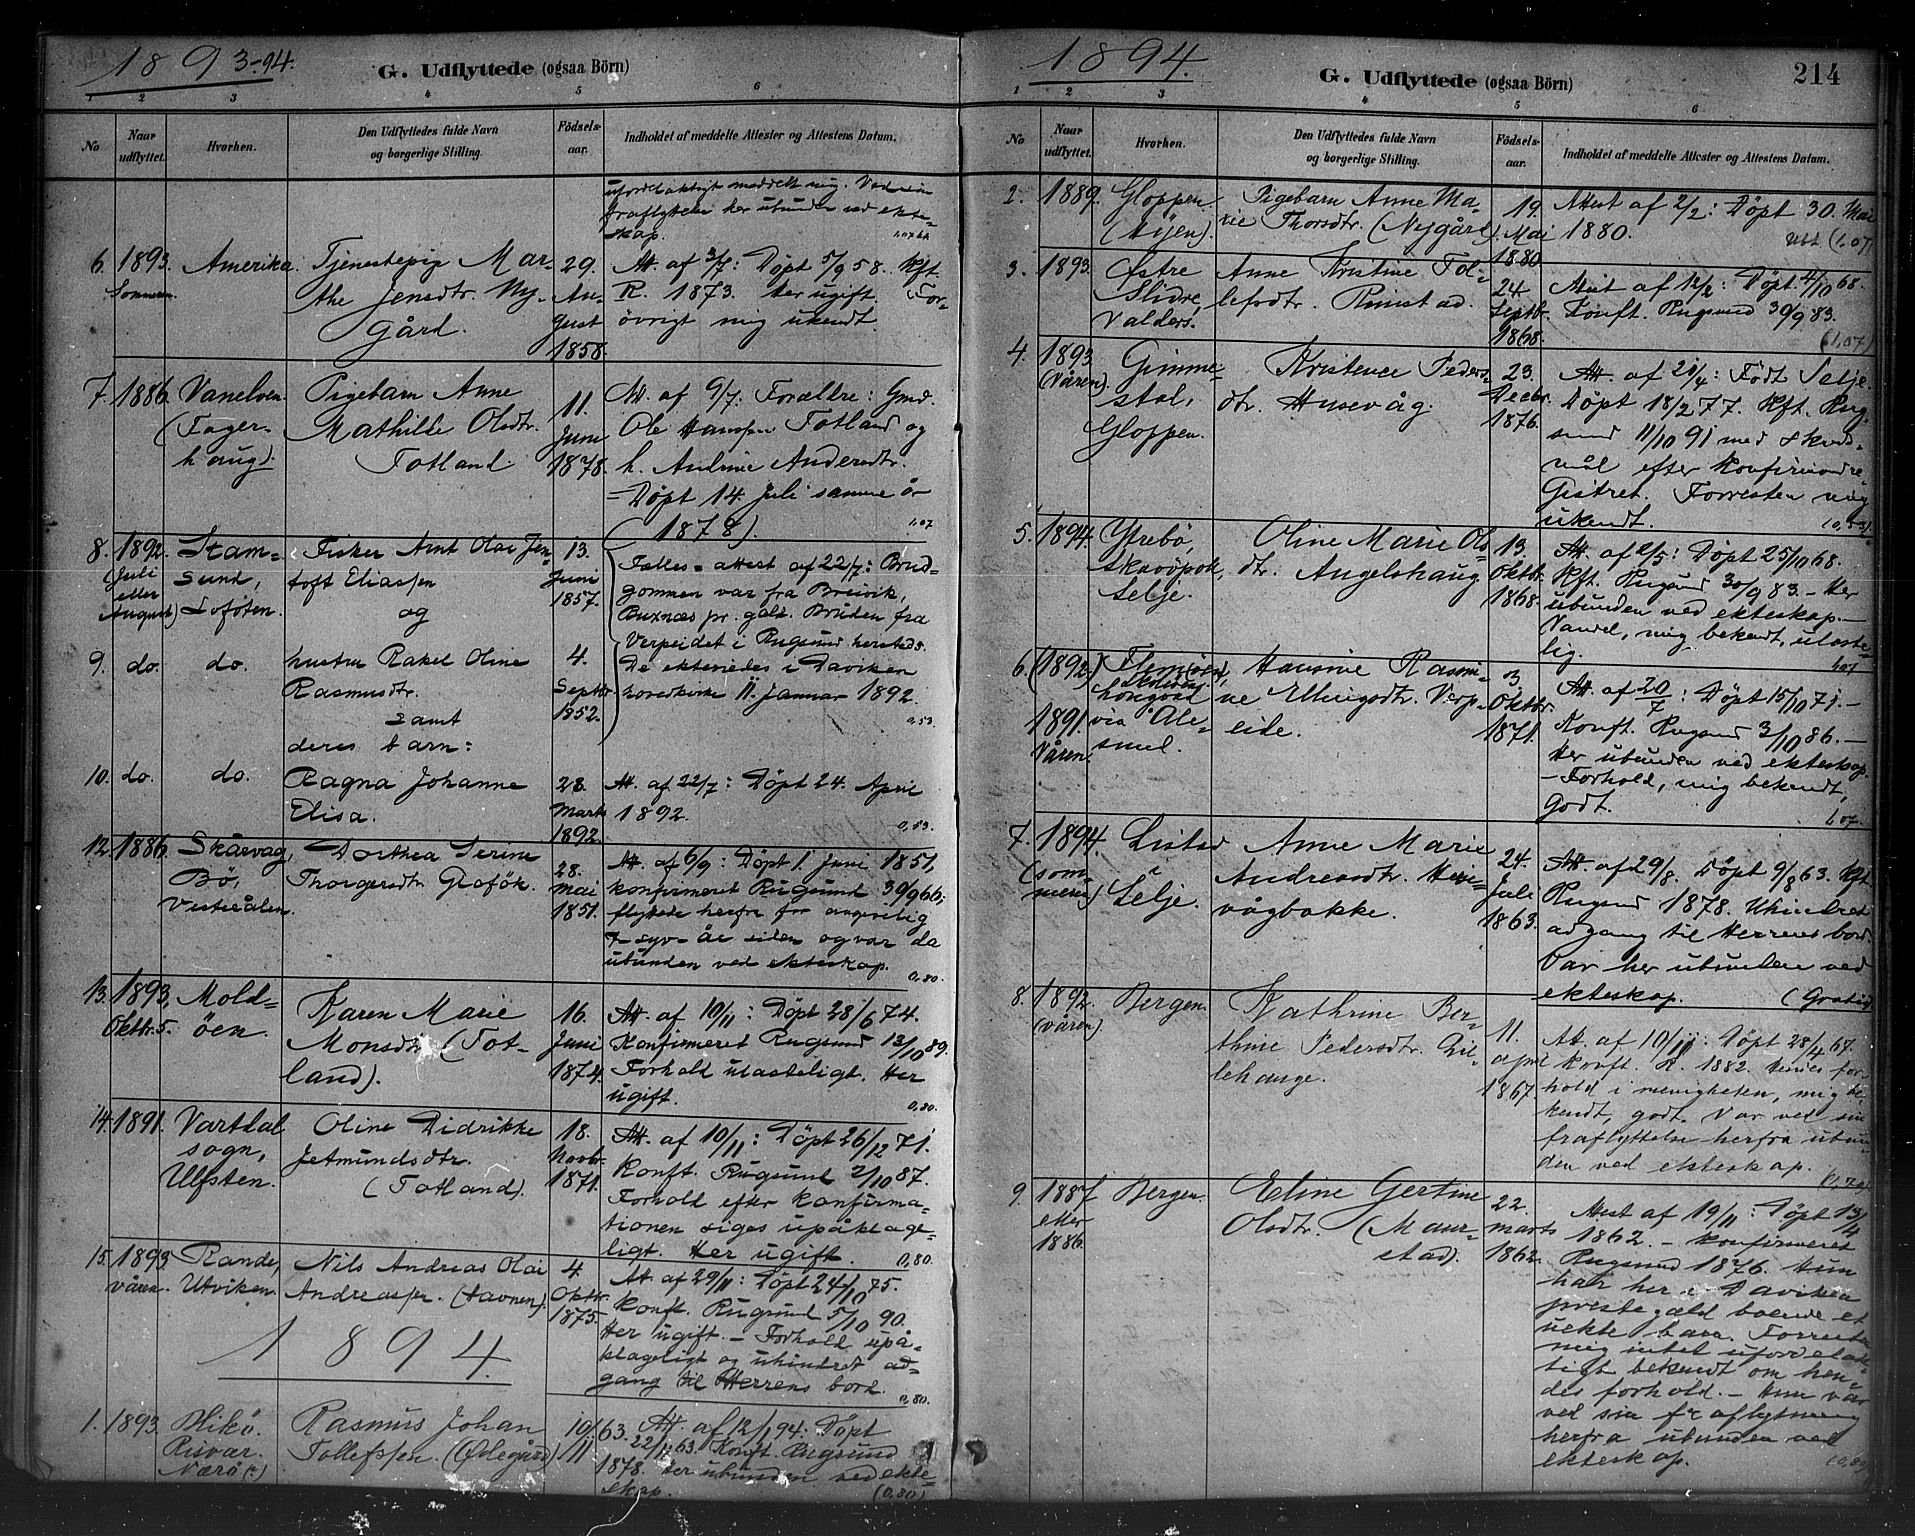 1893-94.
G. Udflyttede (ogsaa Börn)
1 2 3 4 5 6
No
Naar udflyttet.
Hvorhen.
Den Udflyttedes fulde Navn
og borgerlige Stilling.
Födsels-
aar.
Indholdet af meddelte Attester og Attestens Datum.
ufordelaktigt meddelt mig. Ved sin
fraflyttelse her ubunden ved ekte-
skap.
6. 1893. Sommeren. Amerika.
Tjenestepige Mar-
the Jensdtr. Ny-
gård.
29.
Au-
gust
1858.
Att. af 3/7: Döpt 5/9 58. Kft.
R. 1873. Her ugift. For-
övrigt mig ukendt.
7. 1886. Vanelven
(Fager-
haug).
Pigebarn Anne
Mathilde Olsdtr.
Totland
11.
Juni
1878.
Att. af 9/7: Forældre: Gmd.
Ole Hanssen Totland og
h. Andrine Andersdtr.
Döpt 14. Juli samme år
(1878).
1,07
8. 1892.
Juli
eller
August)
Stam-
sund,
Lofoten.
Fisker Arnt Olai Jen-
toft Eliassen
og
13.
Juni
1857.
Fælles-attest af 22/7: Brud-
gommen var fra Breivik,
Buxnæs pr. gæld. Bruden fra
Verpeidet i Rugsund hersteds.
De ekteviedes i Daviken
hovedkirke 11. Januar 1892.
0,53.
9. do. do.
hustru Rakel Oline
Rasmusdtr.
samt
deres barn:
4.
Septbr
1852.
10. do. do.
Ragna Johanne
Elisa.
28.
Marts
1892.
Att. af 22/7: Döpt 24. April
1892.
0,53.
12. 1886. Skårvåg,
Bö,
Vesterålen.
Dorthea Serine
Thorgersdtr
28.
Mai
1851.
Att. af 6/9: Döpt 1 Juni 1851,
konfirmeret Rugsund 30/9 66;
flyttede herfra for angivelig
7-syv-år siden og var da
ubunden ved ekteskap.
0,80.
13. 1893.
Oktbr. 5.
Mold-
öen.
Karen Marie
Monsdtr (Tot-
land).
16.
Juni
1874.
Att. af 10/11: Döpt 28/6 74.
Konfirmeret Rugsund 13/10 89.
Forhold ulasteligt. Her
ugift.
0,80.
14. 1891. Vartdal
sogn,
Ulfsten.
Oline Didrikke
Jetmundsdtr.
(Totland).
18.
Novbr.
1871.
Att. af 10/11: Döpt 26/12 71.
Konft. Rugsund 2/10 87.
Forhold efter konfirma-
tionen siges upåklage-
ligt. Her ugift.
0,80.
15. 1893.
våren.
Rande,
Utviken.
Nils Andreas Olai
Andreassen. (Havnen).
4.
Oktbr.
1875.
Att. af 29/11: Döpt 24/10 75.
Konft. Rugsund 5/10 90.
Her ugift. - Forhold upå-
klageligt og uhindret ad-
gang til Herrens bord.
0,80.
1894.
1. 1893.
Risvær.
Nærö(:)
Rasmus Johan
Tollefssen (Ödegård)
10/11 63.
Att. af 12/1 94: Döpt
22/11 63. Konft. Rugsund
1878. Her ubunden ved ekte-
skap.
(0,80)
1894.
G. Udflyttede (ogsaa Börn)
214
1 2 3 4 5 6
No
Naar udflyttet.
Hvorhen.
Den Udflyttedes fulde Navn
og borgerlige Stilling.
Födsels-
aar.
Indholdet af meddelte Attester og Attestens Datum.
2. 1889. Gloppen
Pigebarn Anne Ma-
rie Thorsdtr. (Nygård).
19.
Mai
1880
Attest af 2/2: Döpt 30. Mai
1880.
(1,07)
3. 1893. Östre
Slidre,
Valders.
Anne Kristine Tol-
lefsdtr. Rimstad.
24
Septbr.
1868.
Attest af 12/2: Döpt 4/10 68.
Konft. Rugsund 30/9 83.
(1,07)
4. 1893
(Våren).
Gimme-
stad,
Gloppen.
Kristence Peders-
dtr. Husevåg.
23.
Decbr.
1876.
Att. af 21/4: Födt Selje.
Döpt 18/2 77. Kft. Rug-
sund 11/10 91 med skuds-
mål efter konfirmande-
gistret. Forresten mig
ukendt.
(0,53)
5. 1894. Ytrebö,
Selje.
Oline Marie Ols-
dtr. Angelshaug
13.
Oktbr.
1868.
Att. af 2/5: Döpt 25/10 68.
Kft. Rugsund 30/9 83. - Her
ubunden ved ekteskap. -
Vandel, mig bekendt, ulaste-
lig.
1,07
6. (1892)
1891.
Våren.
via Åle-
sund.
Hansine Rasmi-
ne Ellingsdtr. Verp-
eide.
3.
Oktbr.
1871.
Att. af 20/7: Döpt 15/10 71. -
Konft. Rugsund 3/10 86. -
Her ubunden ved ekteskap.
- Forhold, mig bekendt,
godt.
1,07.
7. 1894.
(som-
meren)
Listad
Selje.
Anne Marie
Andreasdtr. Hese-
vågbakke.
24.
Juli
1863.
Att. af 29/8. Döpt 9/8 63. Kft
Rugsund 1878. Uhindret
adgang til Herrens bord.
Var her ubunden ved
ekteskap.
(Gratis)
8. 1892.
(våren).
Bergen.
Kathrine Ber-
thine Pedersdtr. Lil-
lehauge.
11.
april
1867.
Att. af 10/11: Döpt 28/4 67.
Konft. R. 1882. Hendes for-
hold i menigheden, mig be-
kendt, godt. Var ved sin
fraflyttelse herfra ubun-
den ved ekteskap.
9. 1887
eller
1886.
Bergen.
Eline Gertine
Olsdtr. (Maur-
stad).
22.
marts
1862.
Attest af 19/11: Döpt 13/4
1862. - Konfirmeret
Rugsund 1876. Hun
har her i Daviken
prestegæld boende et
uekte barn. Forresten
mig intet ufordelak-
tigt bekendt om hen-
des forhold. - Hun var
ved sin fraflytning
herfra ubunden ved
ekteskap.
(0,80)